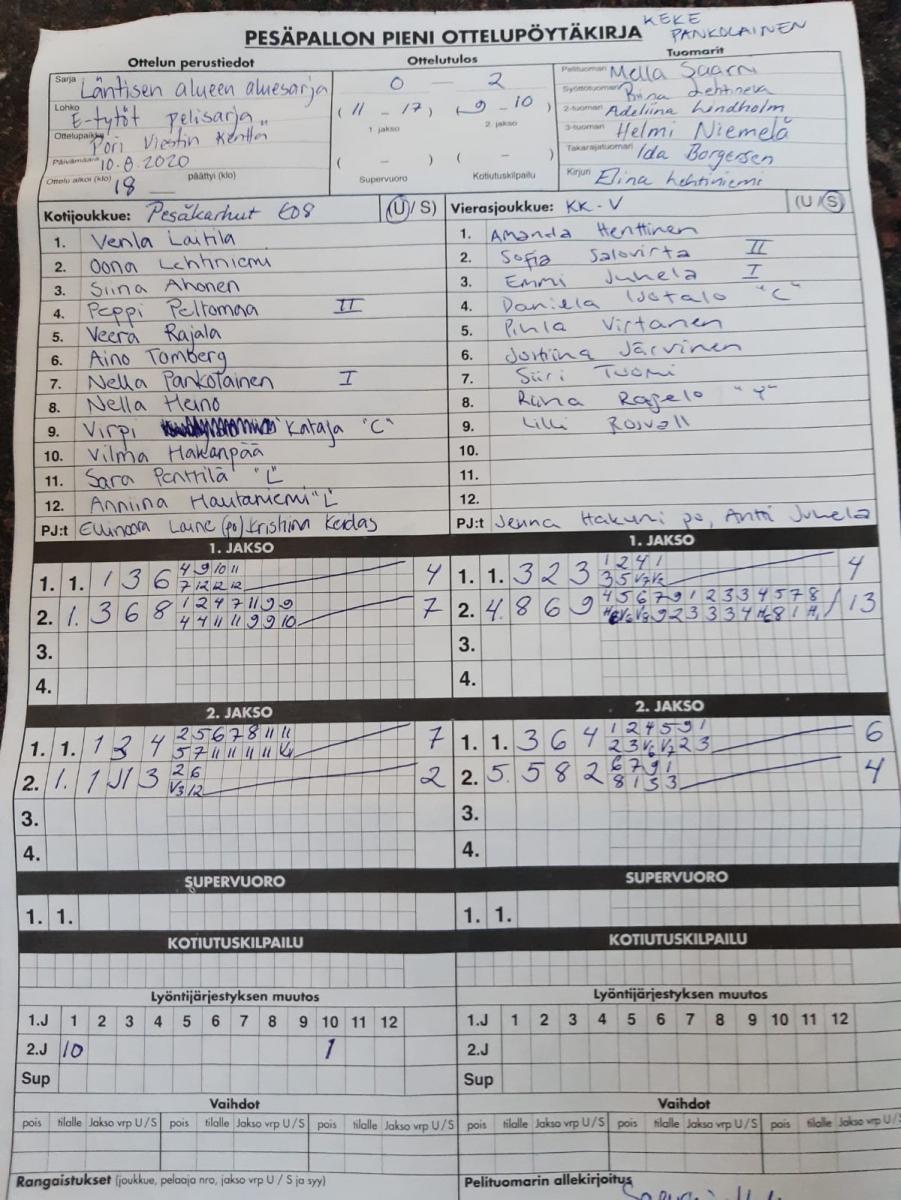 PESÄPALLON PIENI OTTELUPÖYTÄKIRJA
KEKE PANKOLAINEN
Ottelun perustiedot
Ottelutulos
Tuomarit
Sarja Läntisen alueen aluesarja
Lohko E-tytöt pelisarja
Ottelupaikka Pori Viestin Kenttä
Päivämäärä 10.8.2020
Ottelu alkoi (klo) 18 päättyi (klo)
0 – 2
(11 – 17) (9 – 10)
1. jakso 2. jakso
( – ) ( – )
Supervuoro Kotiutuskilpailu
Pelituomari Mella Saarni
Syöttötuomari Riina Lehtineva
2-tuomari Adeliina Lindholm
3-tuomari Helmi Niemelä
Takarajatuomari Ida Borgersen
Kirjuri Elina Lehtiniemi
Kotijoukkue: Pesäkarhut E08 (U / S)
1. Venla Laitila
2. Oona Lehtiniemi
3. Siina Ahonen
4. Peppi Peltomaa II
5. Veera Rajala
6. Aino Tomberg
7. Nella Pankolainen I
8. Nella Heino
9. Virpi Kataja "C"
10. Vilma Hakanpää
11. Sara Penttilä "L"
12. Anniina Hautaniemi "L"
PJ:t Ellinoora Laine (po) Kristiina Keidas
Vierasjoukkue: KK-V (U / S)
1. Amanda Henttinen
2. Sofia Salovirta II
3. Emmi Juhela I
4. Daniela "C"
5. Pihla Virtanen
6. Järvinen
7. Siiri Tuomi
8. Riina "Y"
9. Lilli Rosvall
10.
11.
12.
PJ:t Jenna Hakuni po, Antti Juhela
1. JAKSO
1. 1. 1 3 6 4 9 10 11 4
7 12 12 12
2. 1. 3 6 8 1 2 4 7 11 9 9 7
4 4 11 11 9 9 10
3.
4.
1. JAKSO
1. 1. 3 2 3 1 2 4 1 4
3 5 V7 V2
2. 4. 8 6 9 4 5 6 7 9 1 2 3 3 4 5 7 8 13
3.
4.
2. JAKSO
1. 1. 1 3 4 2 5 6 7 8 11 11 7
5 7 11 11 11 11 V4
2. 1. 1 11 3 2 6 2
V3 12
3.
4.
2. JAKSO
1. 1. 3 6 4 1 2 4 5 9 1 6
2 3 V6 V7 2 3
2. 5. 5 8 2 6 7 9 1 4
8 1 3 3
3.
4.
SUPERVUORO
1. 1.
SUPERVUORO
1. 1.
KOTIUTUSKILPAILU
KOTIUTUSKILPAILU
Lyöntijärjestyksen muutos
1.J 1 2 3 4 5 6 7 8 9 10 11 12
2.J 10 1
Sup
Lyöntijärjestyksen muutos
1.J 1 2 3 4 5 6 7 8 9 10 11 12
2.J
Sup
Vaihdot
pois tilalle Jakso vrp U / S pois tilalle Jakso vrp U / S pois tilalle Jakso vrp U / S
Vaihdot
pois tilalle Jakso vrp U / S pois tilalle Jakso vrp U / S pois tilalle Jakso vrp U / S
Rangaistukset (joukkue, pelaaja nro, jakso vrp U / S ja syy)
Pelituomarin allekirjoitus